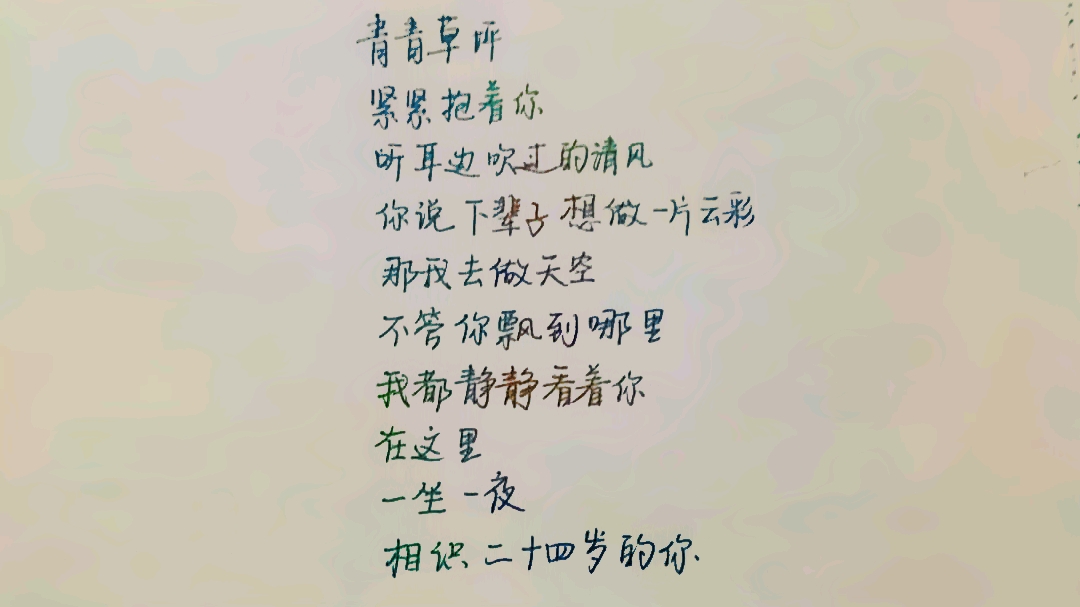 青青草坪
紧紧抱着你
听耳边吹过的清风
你说下辈子想做一片云彩
那我去做天空
不管你飘到哪里
我都静静看着你
在这里
一坐一夜
相识二十四岁的你.